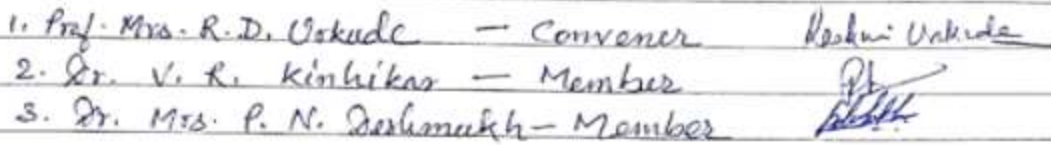 1. Prof. Mrs. R.D. Urkude — Convener
2. Dr. V. R. Kinhikar — Member
3. Dr. Mrs. P. N. Deshmukh — Member